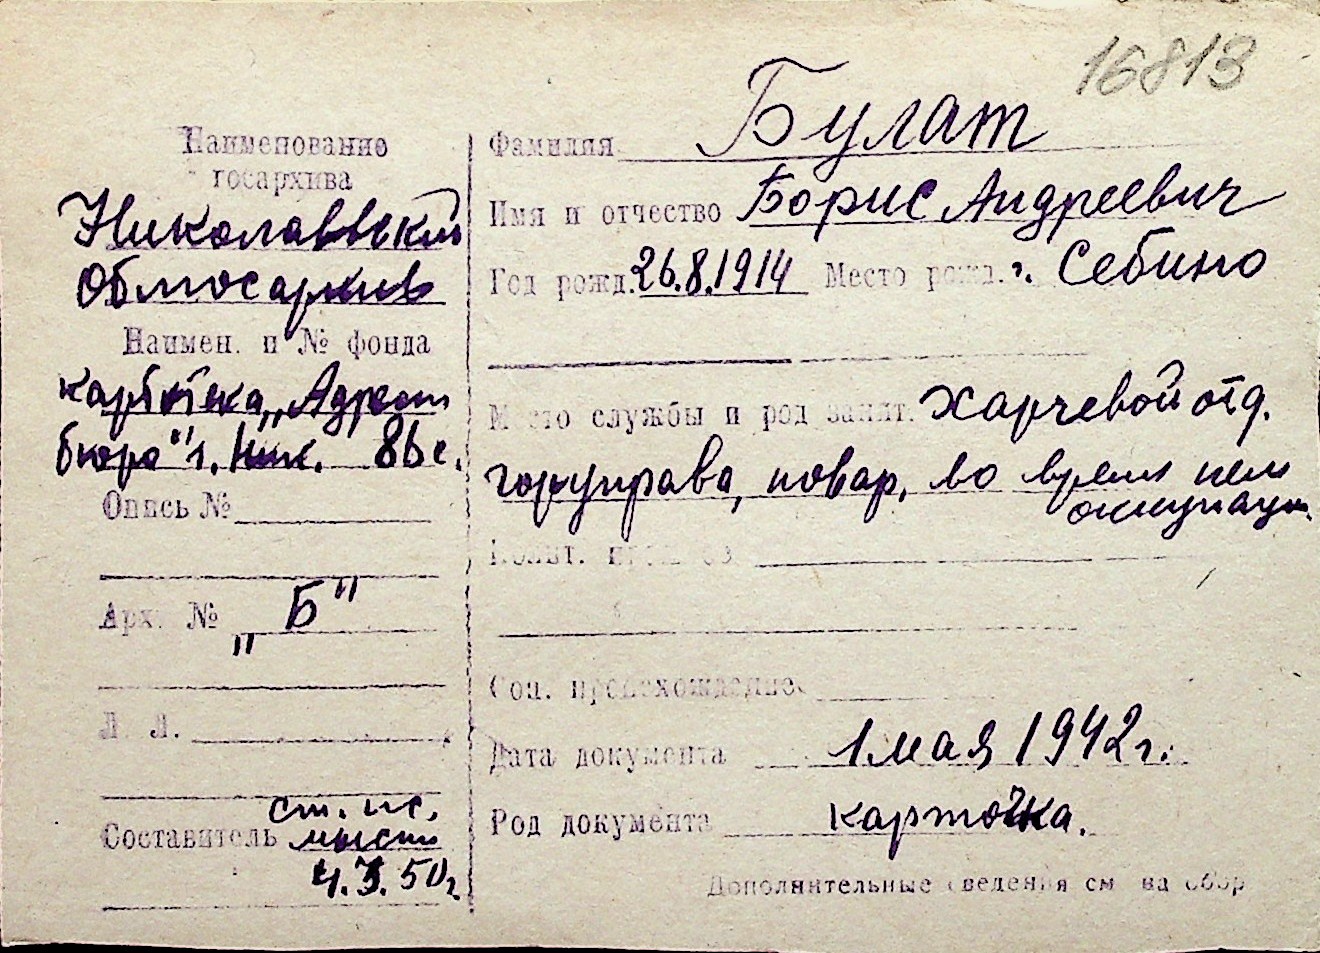 16813
Наименование
госархива
Николаевский
Облгосархив
Наимен. и № фонда
картотека „Адресн
бюро" г. Ник.
Опись №
Арх. № „Б"
Л. Л.
ст. ис.
Составитель
50г.
Фамилия Булат
Имя и отчество Борис Андреевич
Год рожд. 26.8.1914 Место рожд. г. Себино
Место службы и род занят. Харчевой отд.
горуправа, повар, во время нем
оккупац.
Полит.
Соц. происхождение
Дата документа 1 мая 1942 г.
Род документа карточка.
Дополнительные сведения см на обор